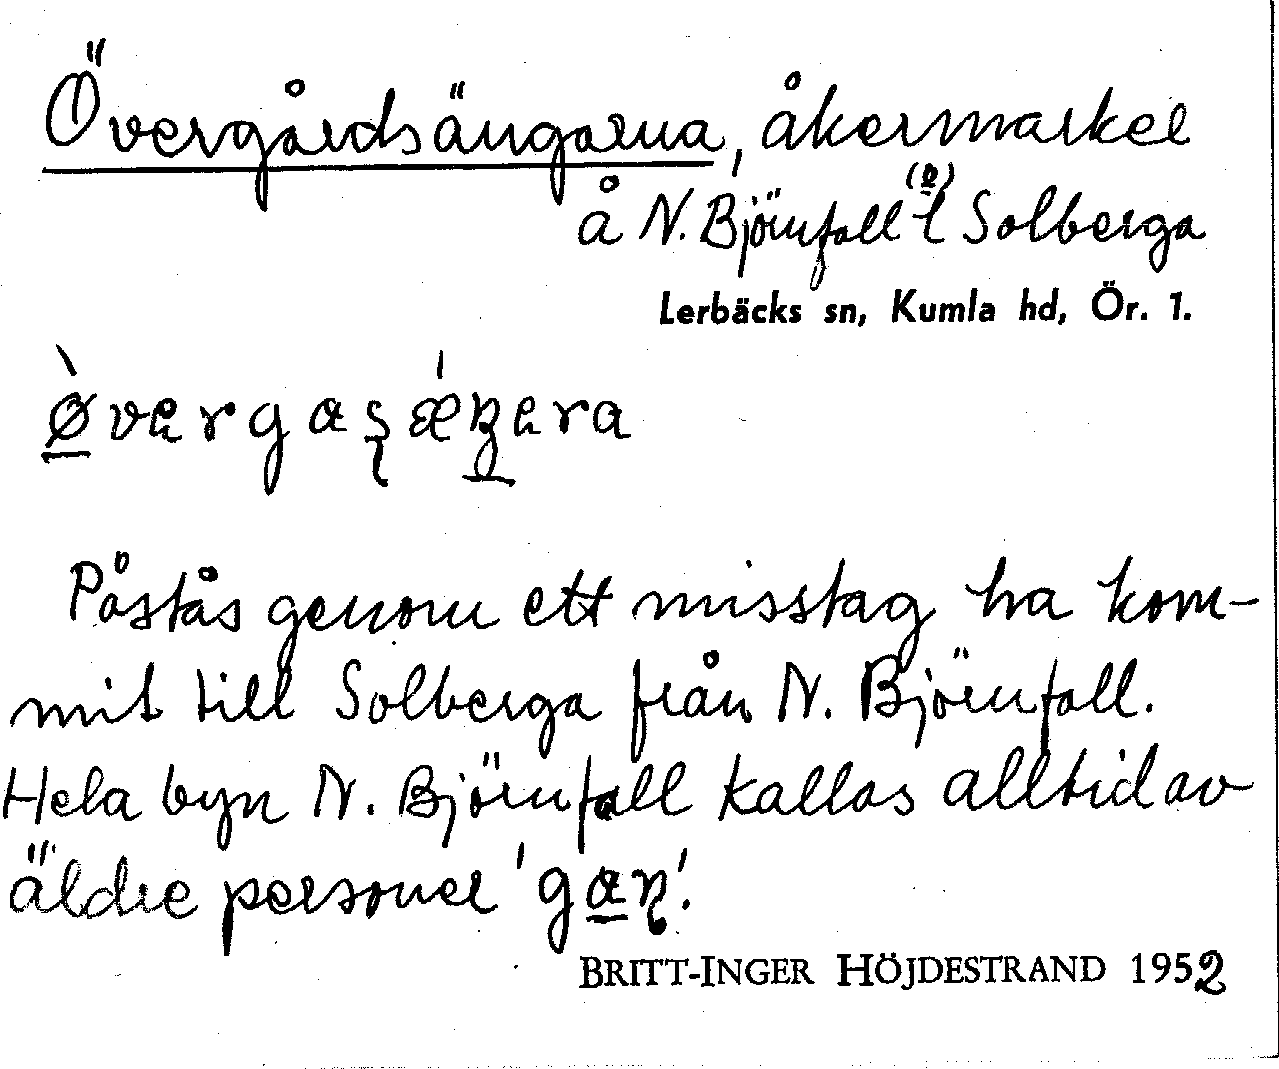 Övergårdsängarna, åkermarkel
å N. Björnfall (o) t Solberga
Lerbäcks sn, Kumla hd, Ör. 1.
Påstås genom ett misstag ha kom-
mit till Solberga från N. Björnfall.
Hela byn N. Björnfall kallas alltid av
äldre personer 
BRITT-INGER HÖJDESTRAND 1952